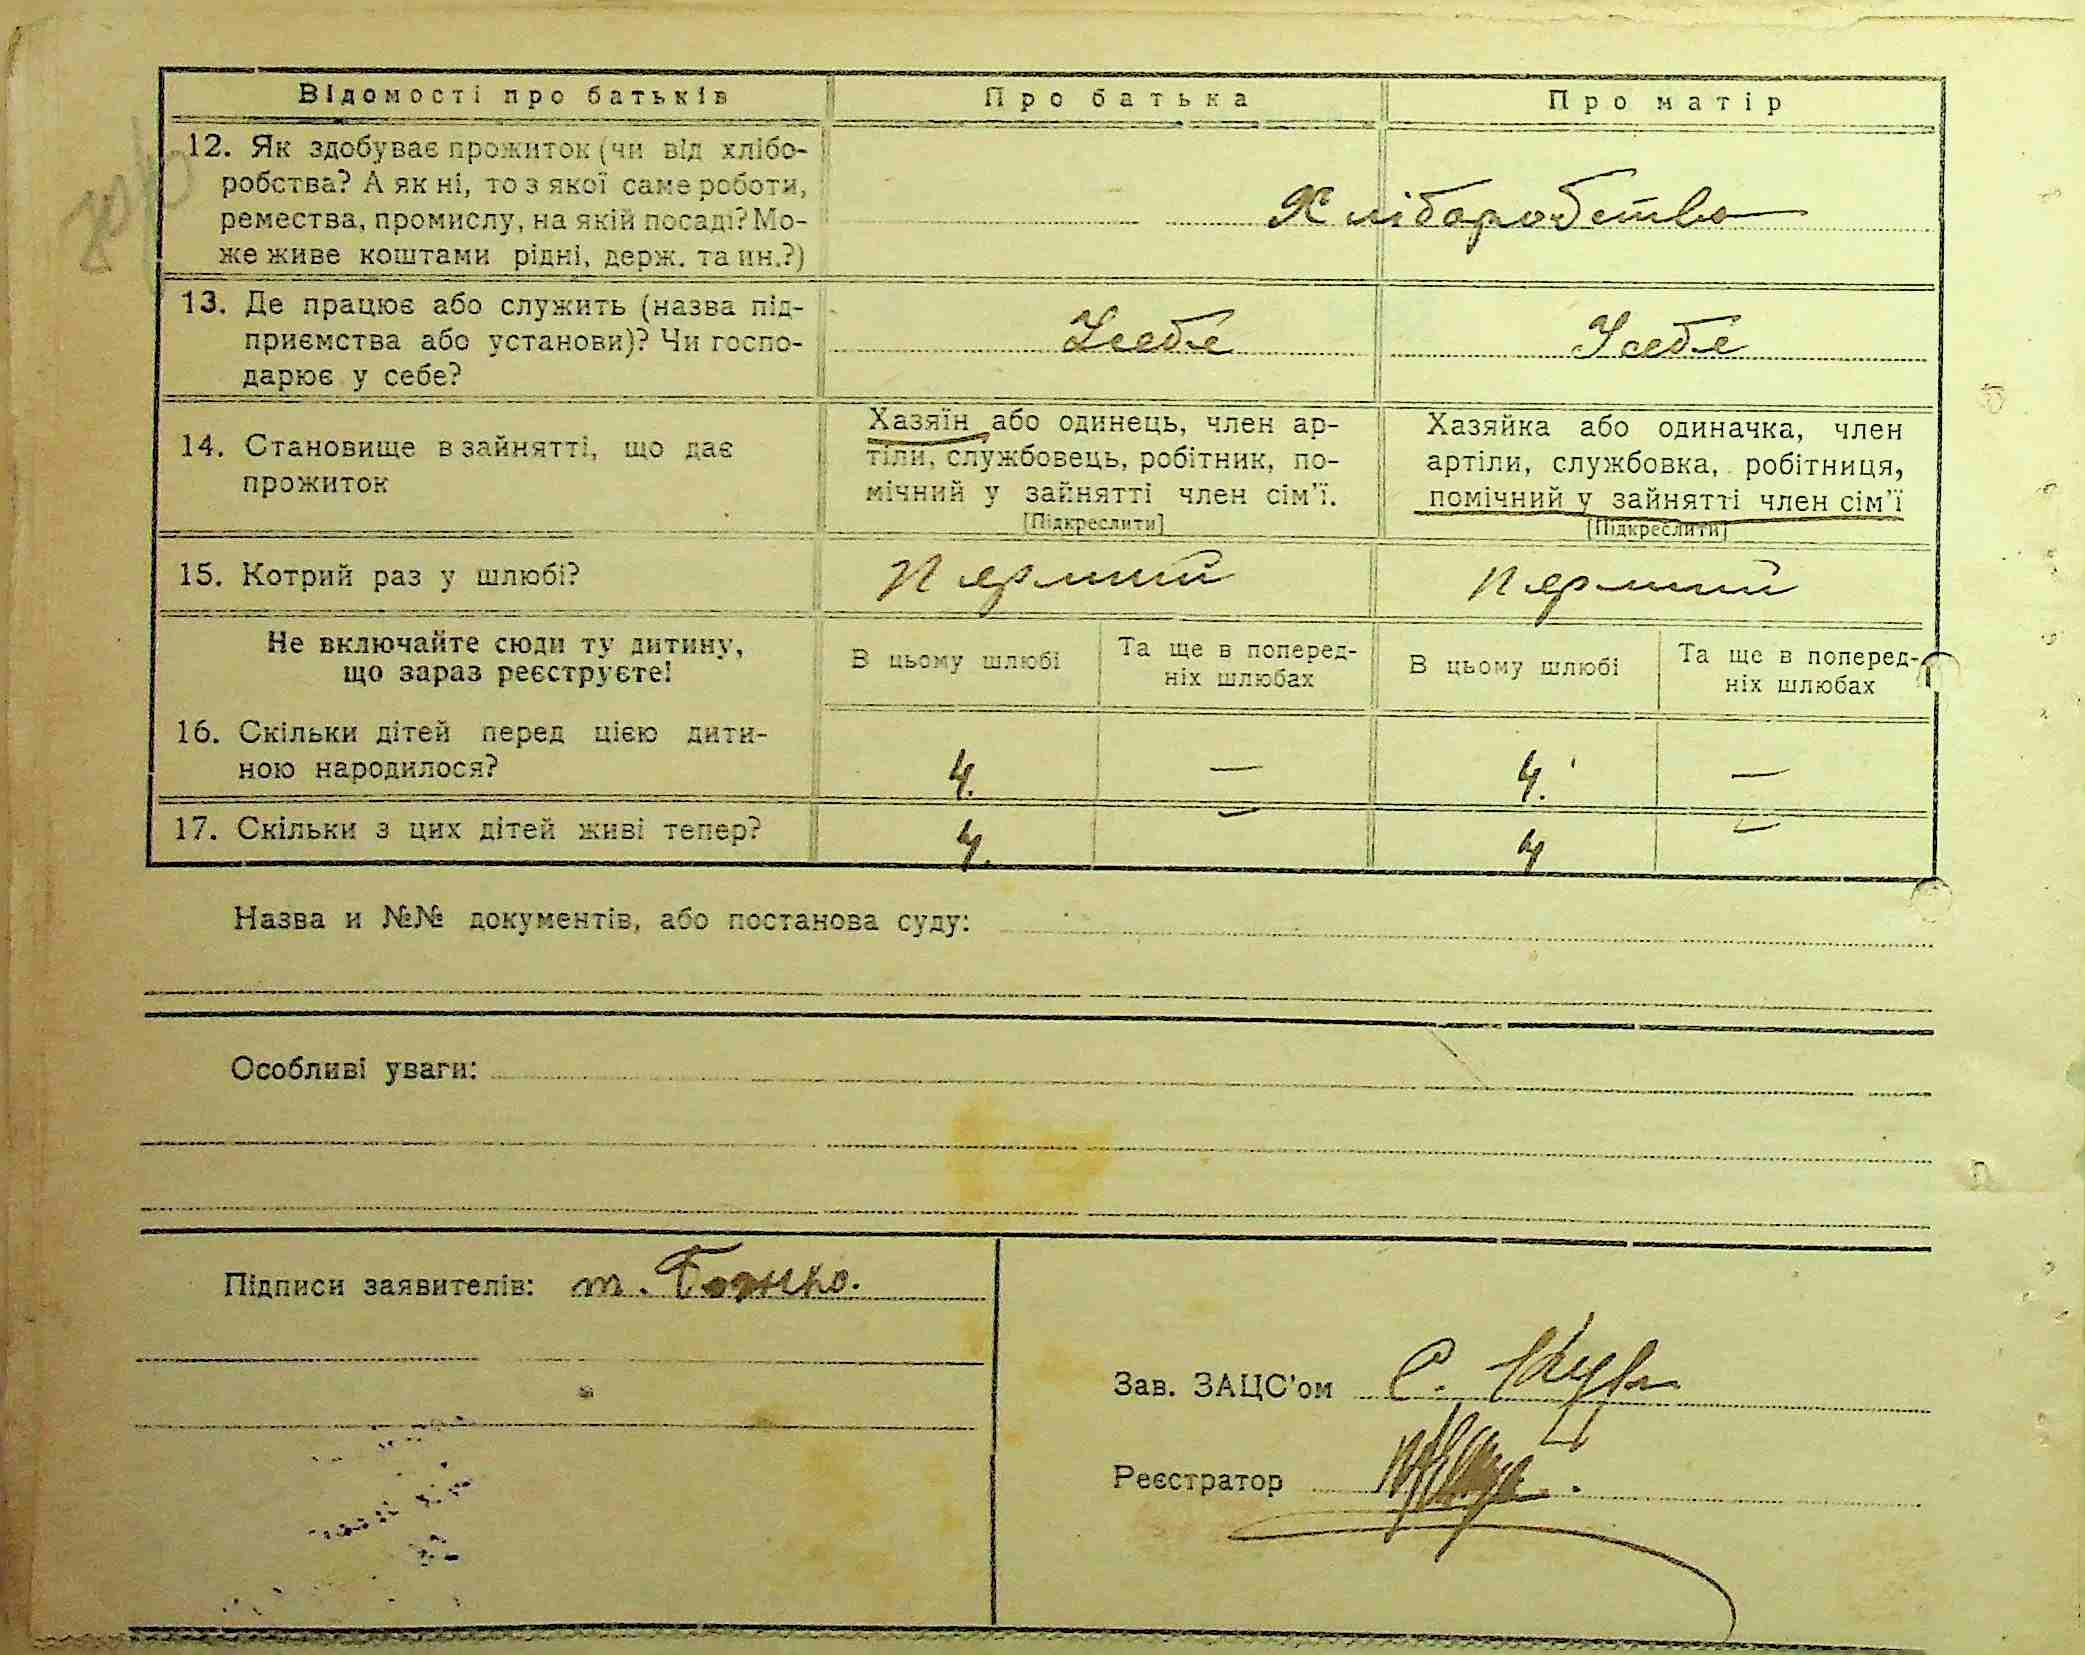 Відомості про батьків
Про батька
Про матір
12. Як здобуває прожиток (чи від хлібо-
робства? А як ні, то з якої саме роботи,
ремества, промислу, на якій посаді? Мо-
же живе коштами рідні, держ. та ин.?)
Хліборобство
13. Де працює або служить (назва під-
приємства або установи)? Чи госпо-
дарює у себе?
Усебе
Усебе
14. Становище в зайнятті, що дає
прожиток
Хазяїн або одинець, член ар-
тіли, службовець, робітник, по-
мічний у зайнятті член сім'ї.
[Підкреслити]
Хазяйка або одиначка, член
артіли, службовка, робітниця,
помічний у зайнятті член сім'ї
[Підкреслити]
15. Котрий раз у шлюбі?
Перший
Перший
Не включайте сюди ту дитину,
що зараз реєструєте!
В цьому шлюбі
Та ще в поперед-
ніх шлюбах
В цьому шлюбі
Та ще в поперед-
ніх шлюбах
16. Скільки дітей перед цією дити-
ною народилося?
4. — 4. —
17. Скільки з цих дітей живі тепер?
4. — 4 —
Назва и №№ документів, або постанова суду:
Особливі уваги:
Підписи заявителів: т. Божко.
Зав. ЗАЦС'ом С.
Реєстратор